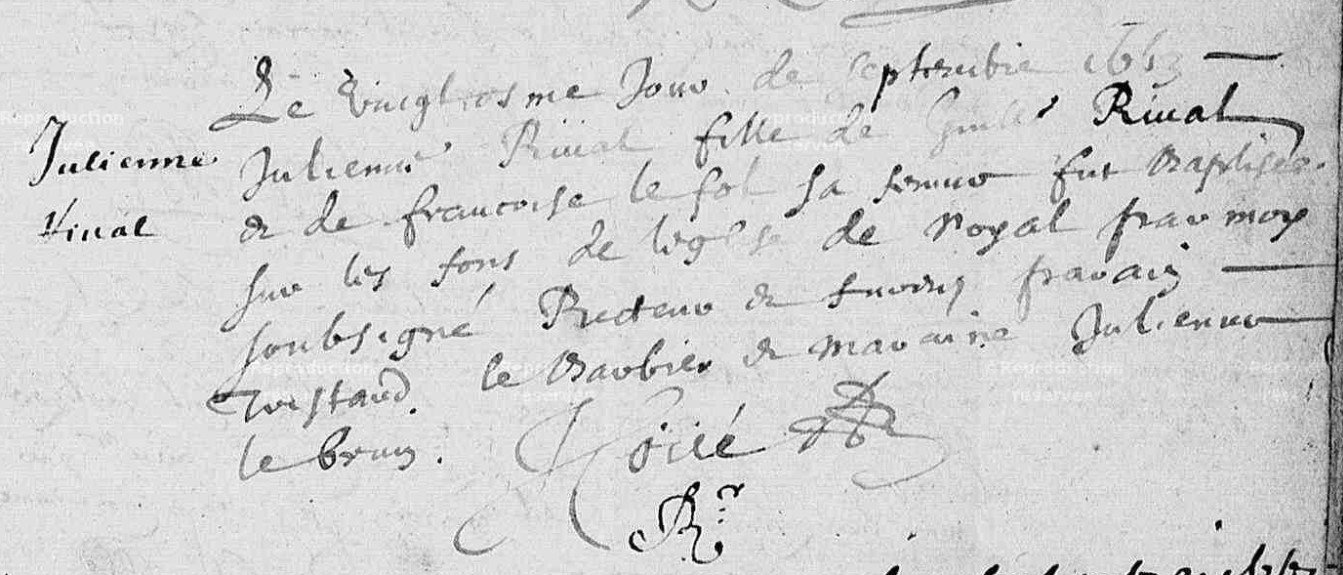 Julienne
Rival
Le vingtiesme Jour de septembre 1653
Julienne Rival fille de Rival
& de francoise le fol sa femme fut Baptisee
sur les fons de leglise de Noyal par moy
soubsigné Recteur & parain
Toustand le Barbier & maraine Julienne
le brun.
Rr